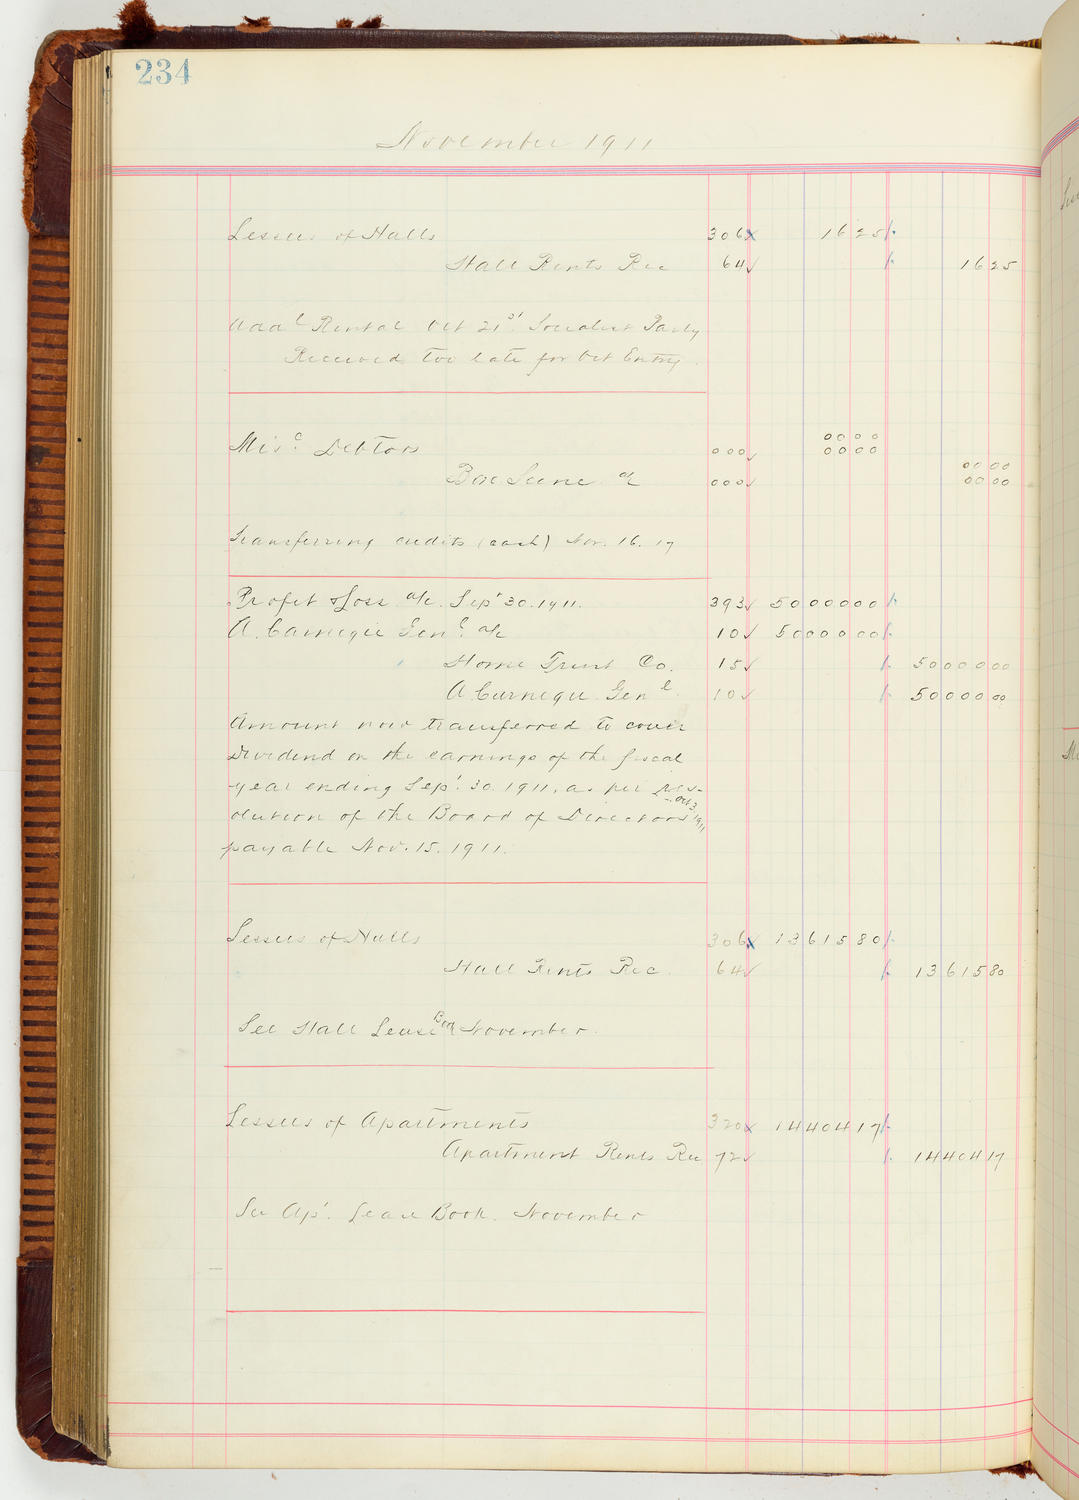 234
November 1911
Lessees of Halls 306 16 25
Hall Rents Rec 64 16 25
Add'l Rental Oct 21st Socialist Party
Received too late for Oct Entry.
Misc. Debtors 000 0000 0000
Box Scene a/c 000 0000 0000
Transferring credits (cash) Nov. 16. 17
Profit & Loss a/c. Sept 30. 1911. 393 50000 00
A. Carnegie Genl. a/c 10 50000 00
Home Trust Co. 15 50000 00
A Carnegie Genl. 10 50000 00
Amount now transferred to cover
Dividend on the earnings of the fiscal
year ending Sept. 30. 1911, as per Res-
olution of the Board of Directors Oct 3, 1911
payable Nov. 15. 1911.
Lessees of Halls 306 13615 80
Hall Rents Rec. 64 13615 80
See Hall Lease Book November.
Lessees of Apartments 320 14404 17
Apartment Rents Rec 72 14404 17
See Apt. Lease Book. November